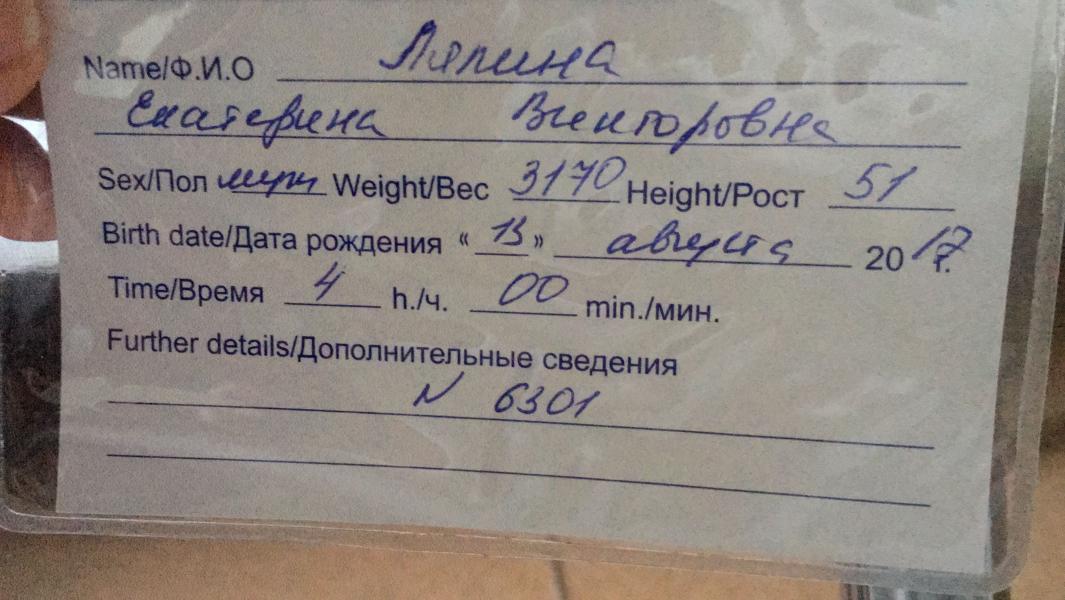 Name/Ф.И.О Ляпина
Екатерина Викторовна
Sex/Пол Weight/Вес 3170 Height/Рост 51
Birth date/Дата рождения « 13 » августа 2017 г.
Time/Время 4 h./ч. 00 min./мин.
Further details/Дополнительные сведения
N 6301